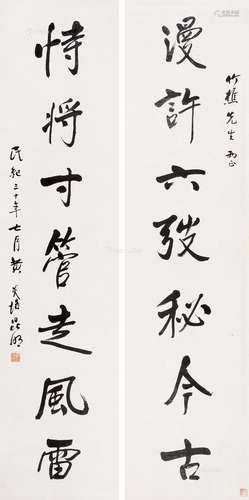 漫許六弢秘今古
竹樵先生兩正
恃將寸管走風雷
民紀三十年七月黃炎培昆明